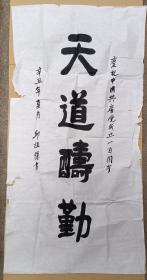 慶祝中國共產党成立一百周年
天道酬勤
辛丑年夏月